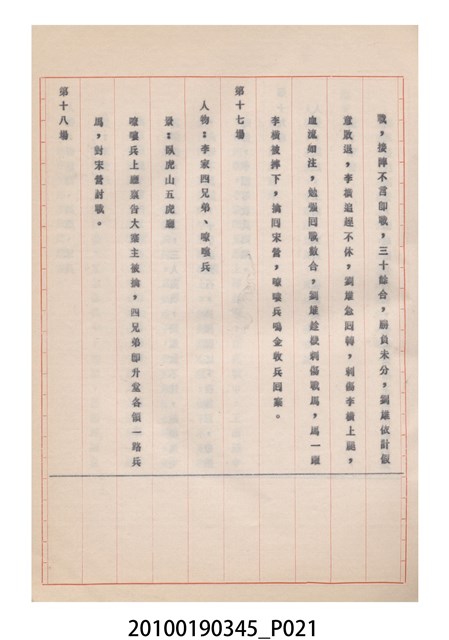 戰，接陣不言即戰，三十餘合，勝負未分，劉雄依計假
意敗退，李橫追趕不休，劉雄急回轉，刺傷李橫上腿，
血流如注，勉强回戰數合，劉雄鎗傷戰馬，馬一蹶
李橫被摔下，擒回宋營，嘍囉兵鳴金收兵回寨。
第十七場
人物：李家四兄弟、嘍囉兵
景：臥虎山五虎廳
嘍囉兵上廳稟告大寨主被擒，四兄弟即升堂各領一路兵
馬，對宋營討戰。
第十八場
20100190345_P021